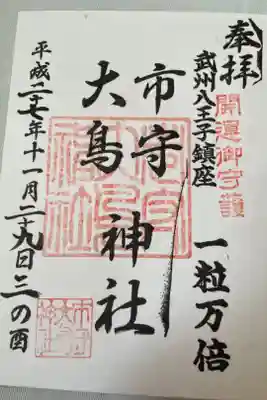 奉拝
開運御守護
武州八王子鎮座
一粒万倍
市守神社
大鳥神社
平成二十七年十一月二十九日三の酉